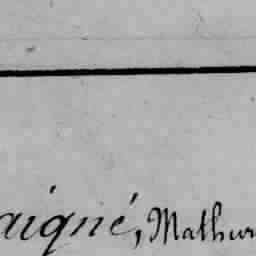 aigné, Mathur